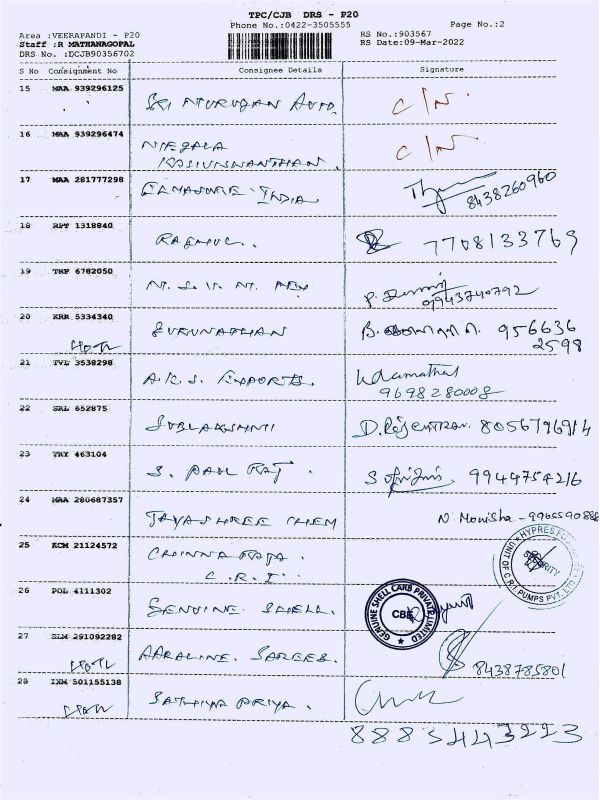 TPC/CJB DRS - P20
Phone No.:0422-3505555
Page No.:2
Area :VEERAPANDI - P20
Staff :R MATHANAGOPAL
DRS No. :DCJB90356702
RS No.:903567
RS Date:09-Mar-2022
S No Consignment No Consignee Details Signature
15 MAA 939296125 SRI MURUGAN AUTO. C/N.
16 MAA 939296474 C/N.
KASIVISWANATHAN.
17 MAA 281777298 INDIA 8438260960
18 RPT 1318840 RAGHUL.. 7708133769
19 TRP 6782050 N. S. V. N.
9943740792
20 KRR 5334340 GURUNATHAN B. 956636
2598
21 TVL 3538298 A.K.S. EXPORTS. Udamathal
9698280008
22 SRL 652875 SUBLAKSHMI D. Rajendran. 8056796914
23 TRY 463104 S. PAUL RAJ. S 9944754216
24 MAA 280687357 JAYASHREE CHEM N. Monisha - 9965590888
25 KCM 21124572 CHINNA RAJA.
C.R.I.
SECURITY
UNIT OF C.R.I. PUMPS PVT. LTD.
26 POL 4111302 GENUINE SHELL.
GENUINE SHELL CARB PRIVATE LIMITED
CBE
27 SLM 291092282 AARALINE. SAREES.
8438785801
28 IXM 501155138 SATHIYA PRIYA.
8885443223